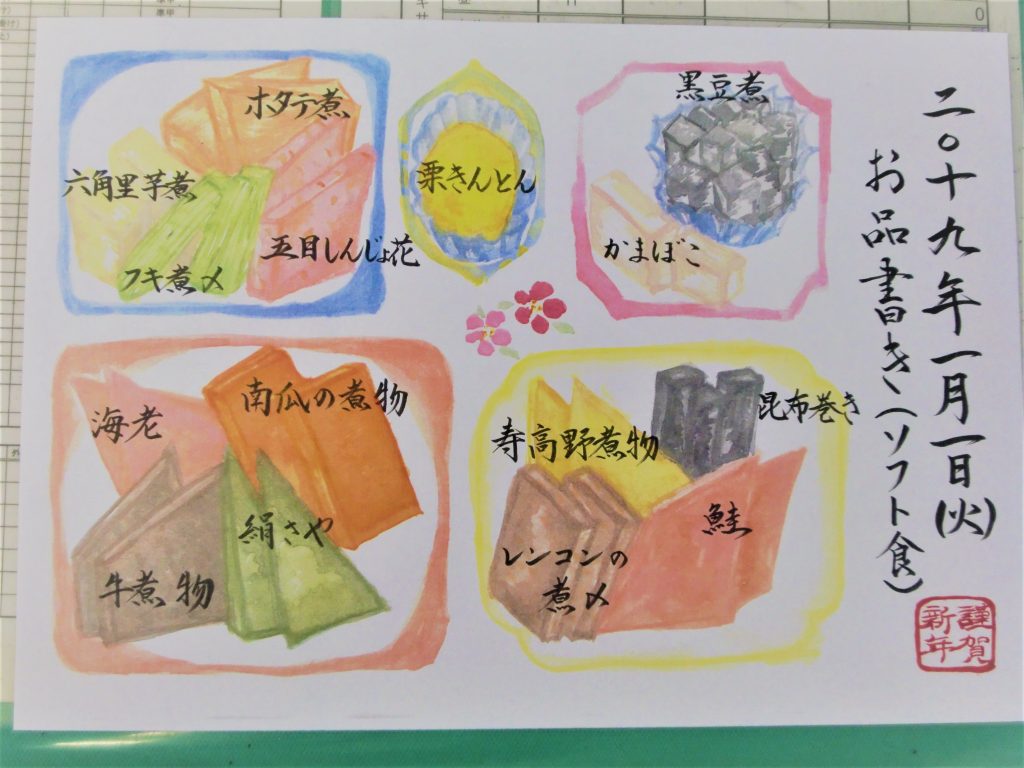 二〇十九年一月一日(火)
お品書き(ソフト食)
謹賀
新年
黒豆煮
かまぼこ
栗きんとん
ホタテ煮
六角里芋煮
五目しんじょ花
フキ煮〆
昆布巻き
寿高野煮物
鮭
レンコンの
煮〆
南瓜の煮物
海老
絹さや
牛煮物